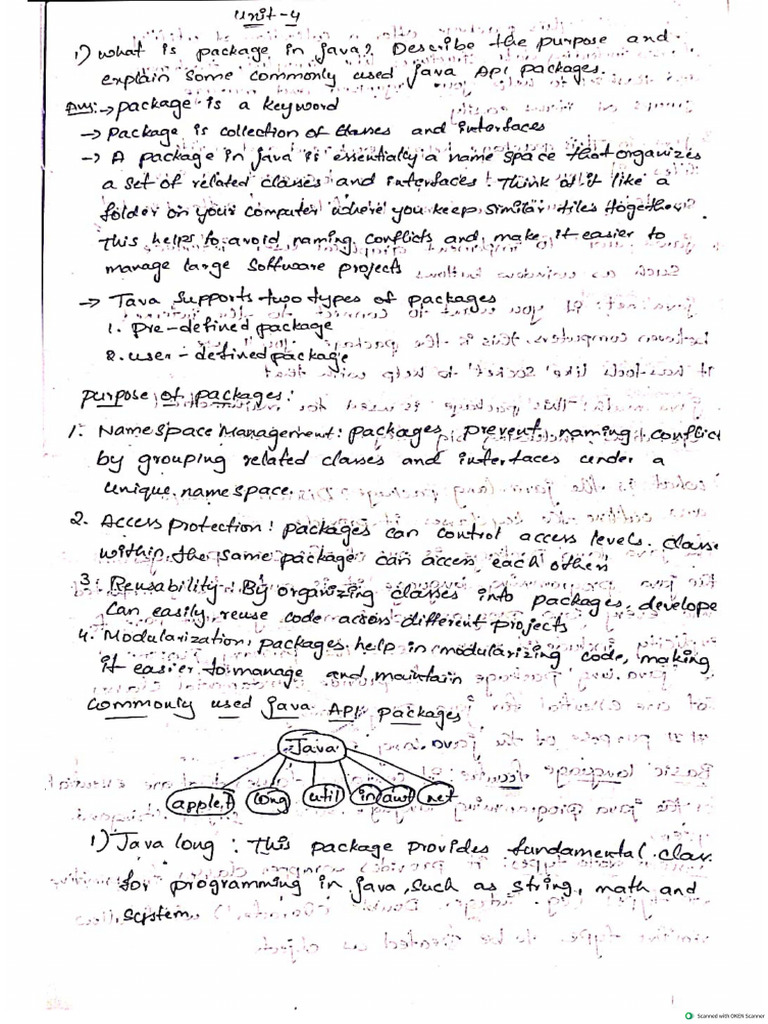 Unit-4
1) what is package in java? Describe the purpose and
explain some commonly used java API packages.
Ans:→ package is a keyword
→ package is collection of classes and interfaces
→ A package in java is essentially a name space that organizes
a set of related classes and interfaces. Think of it like a
folder on your computer where you keep similar files together.
This helps to avoid naming conflicts and make it easier to
manage large software projects
→ Java supports two types of packages
1. pre-defined package
2. user-defined package
purpose of packages:
1. Name space Management: packages prevent naming conflict
by grouping related classes and interfaces under a
unique namespace.
2. Access protection: packages can control access levels. classe
within the same package can access each others
3. Reusability: By organizing classes into packages, develope
can easily reuse code across different projects
4. Modularization, packages help in modularizing code, making
it easier to manage and maintain
commonly used java API packages
Java
applet long util in awt net
1) Java long: This package provides fundamental class
for programming in java, such as string, math and
system
Scanned with OKEN Scanner